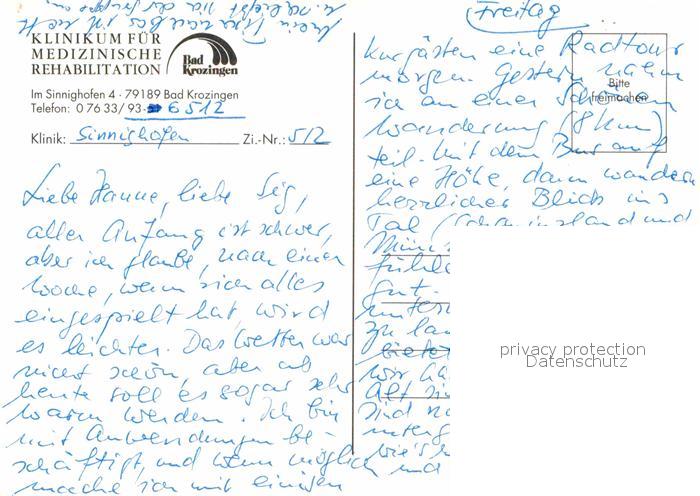 KLINIKUM FÜR
MEDIZINISCHE
REHABILITATION
Bad
Krozingen
Im Sinnighofen 4 · 79189 Bad Krozingen
Telefon: 0 76 33/ 93- 6512
Klinik: Sinnighofen Zi.-Nr.: 512
Liebe Hanne, liebe Sig,
aller Anfang ist schwer,
aber ich glaube, nach einer
Woche, wenn sich alles
eingespielt hat, wird
es leichter. Das Wetter war
nicht schön, aber ab
heute soll es sogar sehr
warm werden. Ich bin
mit Anwendungen be-
schäftigt, und wenn möglich
mache ich mit einigen
Freitag
Kurgästen eine Radtour
morgen. Gestern nahm
ich an einer schönen
Wanderung (8 km)
teil. Mit dem Bus auf
eine Höhe, dann wandern
herrlicher Blick ins
Tal (Schauinsland und
Müns
fühle
gut.
unter
zu la
biete
wir ha
Alt si
sind
unter
wie's
und
Bitte
freimachen
privacy protection
Datenschutz